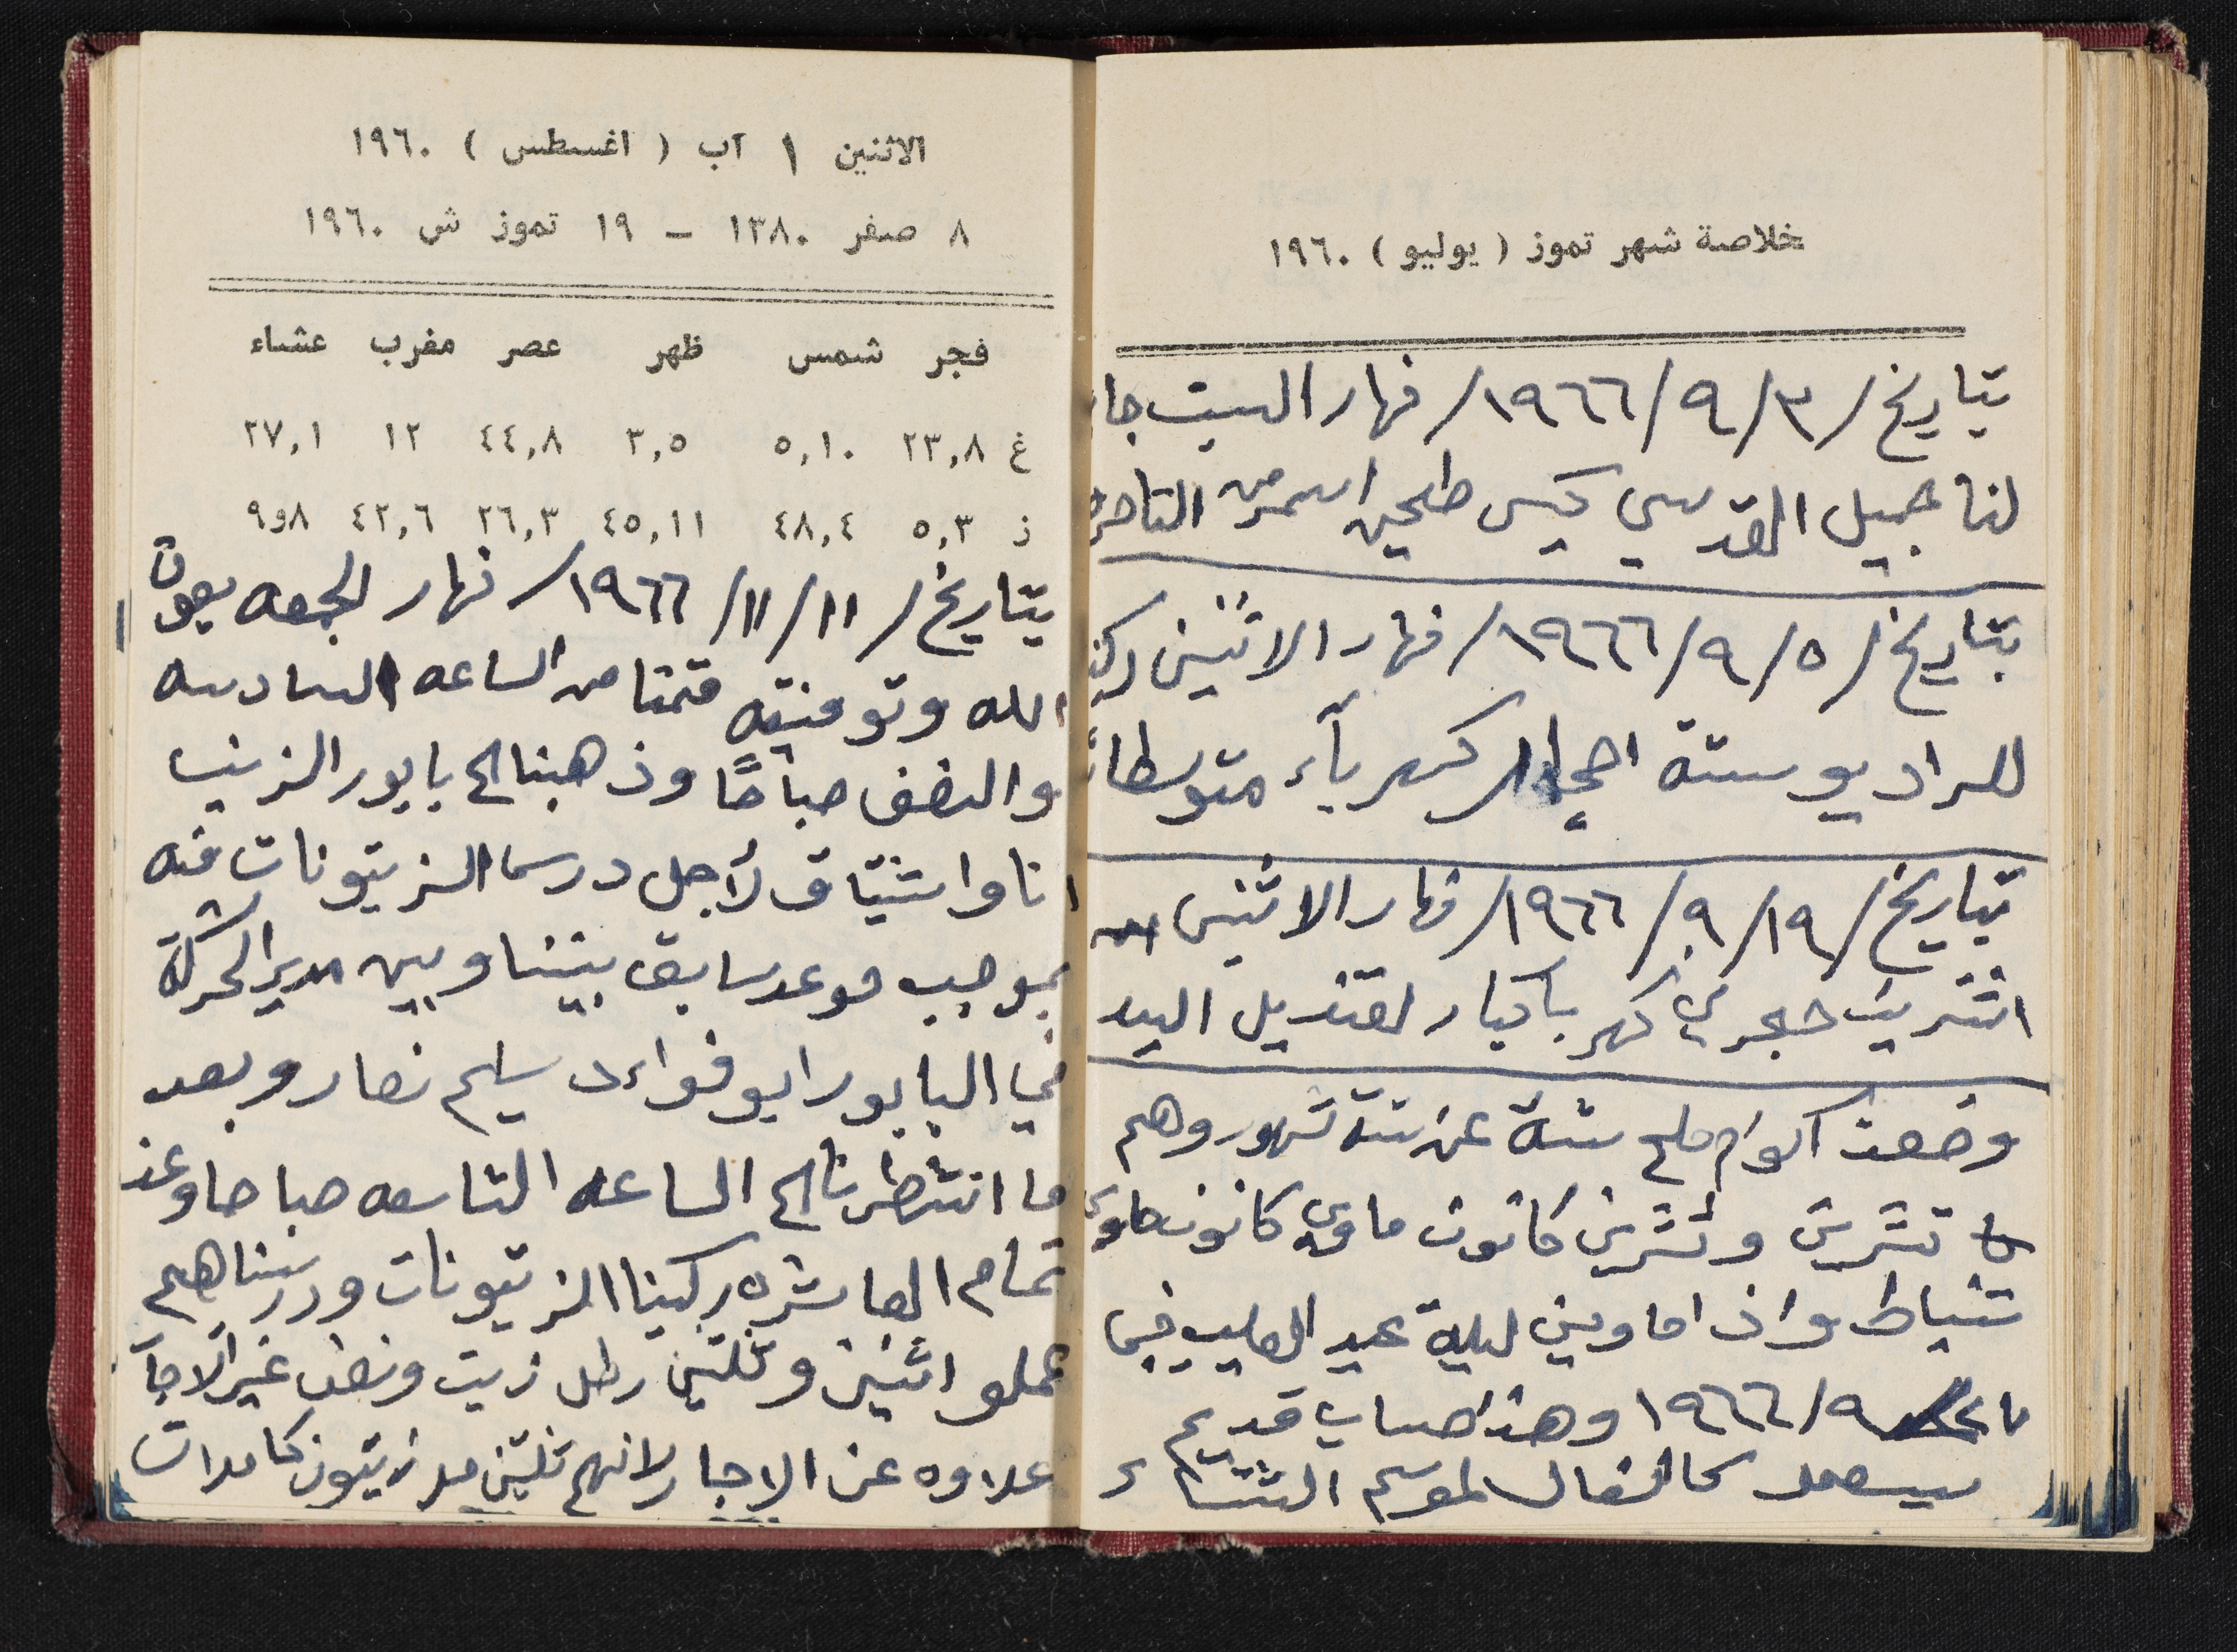 خلاصة شهر تموز ( يوليو ) ١٩٦٠
بتاريخ /٣/٩/١٩٦٦/ نهار السبت جا
لنا جميل القدسي كيس طحين اسمر من
بتاريخ /٥/٩/١٩٦٦/ نهار الاثنين
للراديو ستة احجار كهربآء متوسطات
بتاريخ /١٩/٩/١٩٦٦/ نهار الاثنين
اشتريت حجرين كهربا كبار لقنديل اليد
وضعت اكوام ملح ستة عن ستة شهور وهم
تشرين وتشرين كانون ماوي كانون ماوي
شباط واذا ماوين ليلة عيد الصليب في
٩/١٩٦٦ وهذا حساب قديم
كالفال لموسم الشتاء
الاثنين ١ آب ( اغسطس ) ١٩٦٠
٨ صفر ١٣٨٠ – ١٩ تموز ش ١٩٦٠
فجر شمس ظهر عصر مغرب عشاء
غ ٢٣,٨ ٥,١٠ ٣,٥ ٤٤,٨ ١٢ ٢٧,١
ز ٥,٣ ٤٨,٤ ٤٥,١١ ٢٦,٣ ٤٢,٦ ٩و٨
بتاريخ /١١/١١/١٩٦٦/ نهار الجمعه بعون
الله وتوفيقه قمنا من الساعه السادسه
والنصف صباحًا وذهبنا الى بابور الزيت
انا واشتياق لأجل درس الزيتونات فيه
بموجب موعد سابق بيننا وبين مدير الحركة
في البابور ابو فواد سليم نصار وبعد
ما انتظرنا الى الساعه التاسعه صباحا وعند
تمام العاشره ركبنا الزيتونات ودرسناهم
عملو اثنين وثلثين رطل زيت ونصف غير
علاوه عن الاجار لانهم ثلثين مد زيتون كا مدات